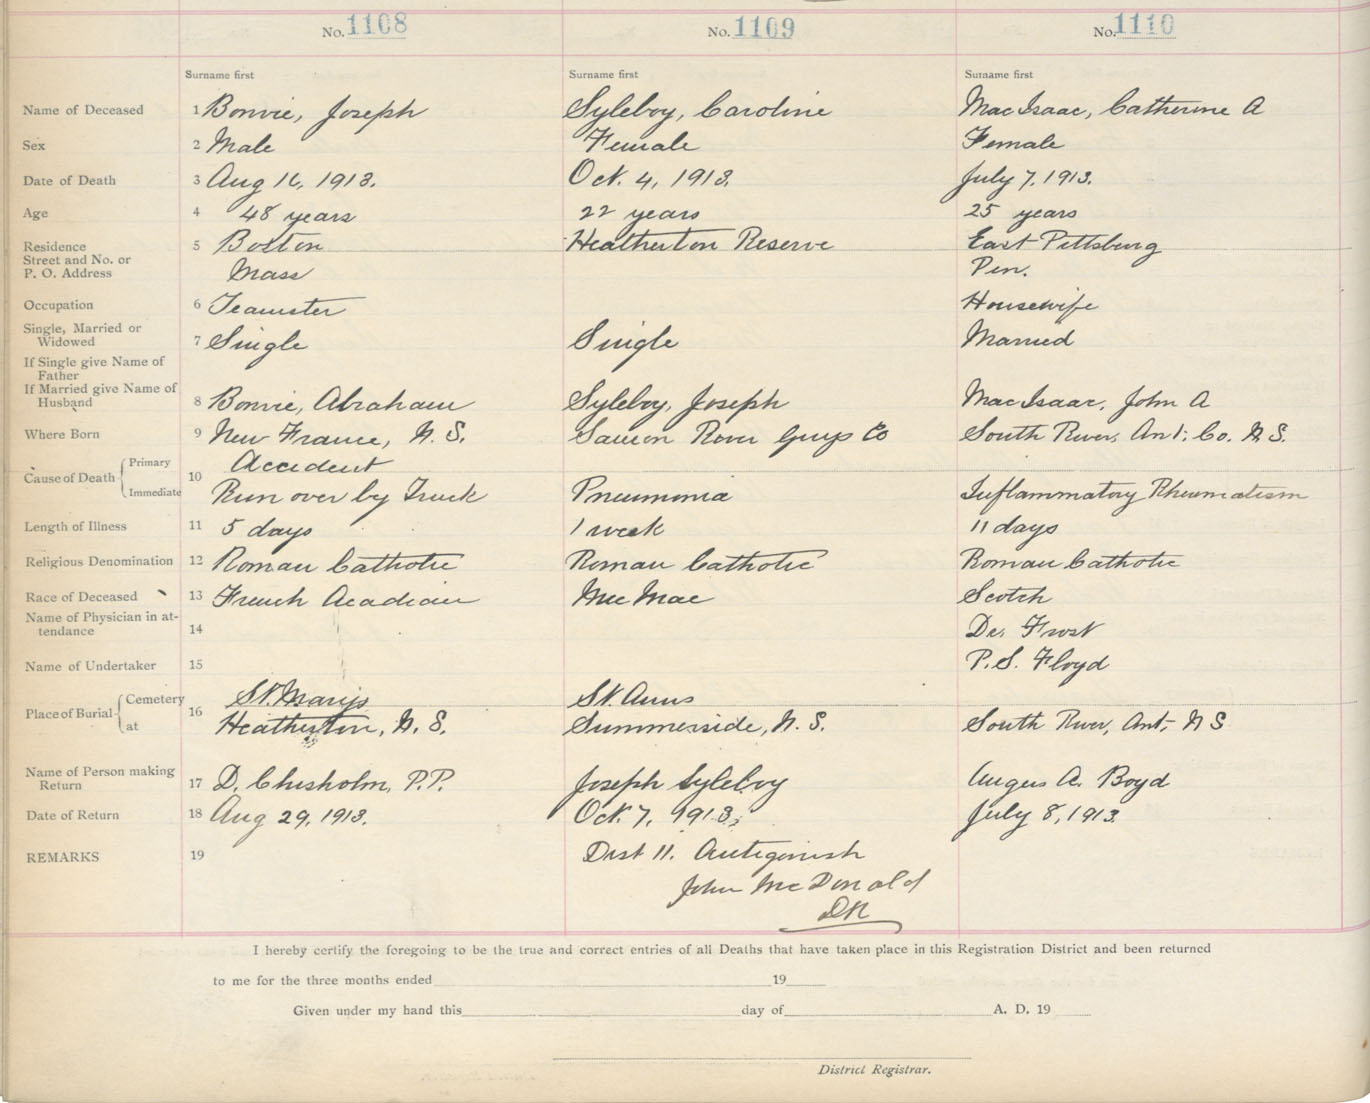 No. 1108 No. 1109 No. 1110
Surname first Surname first Surname first
Name of Deceased 1 Bonvie, Joseph Syleboy, Caroline MacIsaac, Catherine A
Sex 2 Male Female Female
Date of Death 3 Aug 16, 1913. Oct. 4, 1913. July 7, 1913.
Age 4 48 years 22 years 25 years
Residence 5 Boston Heatherton Reserve East Pittsburg
Street and No. or
P. O. Address Mass Pen.
Occupation 6 Teamster Housewife
Single, Married or
Widowed 7 Single Single Married
If Single give Name of
Father
If Married give Name of
Husband 8 Bonvie, Abraham Syleboy, Joseph MacIsaac, John A
Where Born 9 New France, N. S. Samon River Guys Co South River, Ant. Co. N. S.
Cause of Death Primary 10 Accident
Immediate Run over by Truck Pneumonia Inflammatory Rheumatism
Length of Illness 11 5 days 1 week 11 days
Religious Denomination 12 Roman Catholic Roman Catholic Roman Catholic
Race of Deceased 13 French Acadian Mic Mac Scotch
Name of Physician in at-
tendance 14 Dr. Frost
Name of Undertaker 15 P. S. Floyd
Place of Burial Cemetery 16 St. Marys St. Anns
at Heatherton, N. S. Summerside, N. S. South River, Ant, N S
Name of Person making
Return 17 D. Chisholm, P.P. Joseph Syleboy Angus A. Boyd
Date of Return 18 Aug 29, 1913. Oct. 7, 1913; July 8, 1913.
REMARKS 19 Dist 11. Antigonish
John McDonald
DR
I hereby certify the foregoing to be the true and correct entries of all Deaths that have taken place in this Registration District and been returned
to me for the three months ended 19
Given under my hand this day of A. D. 19
District Registrar.